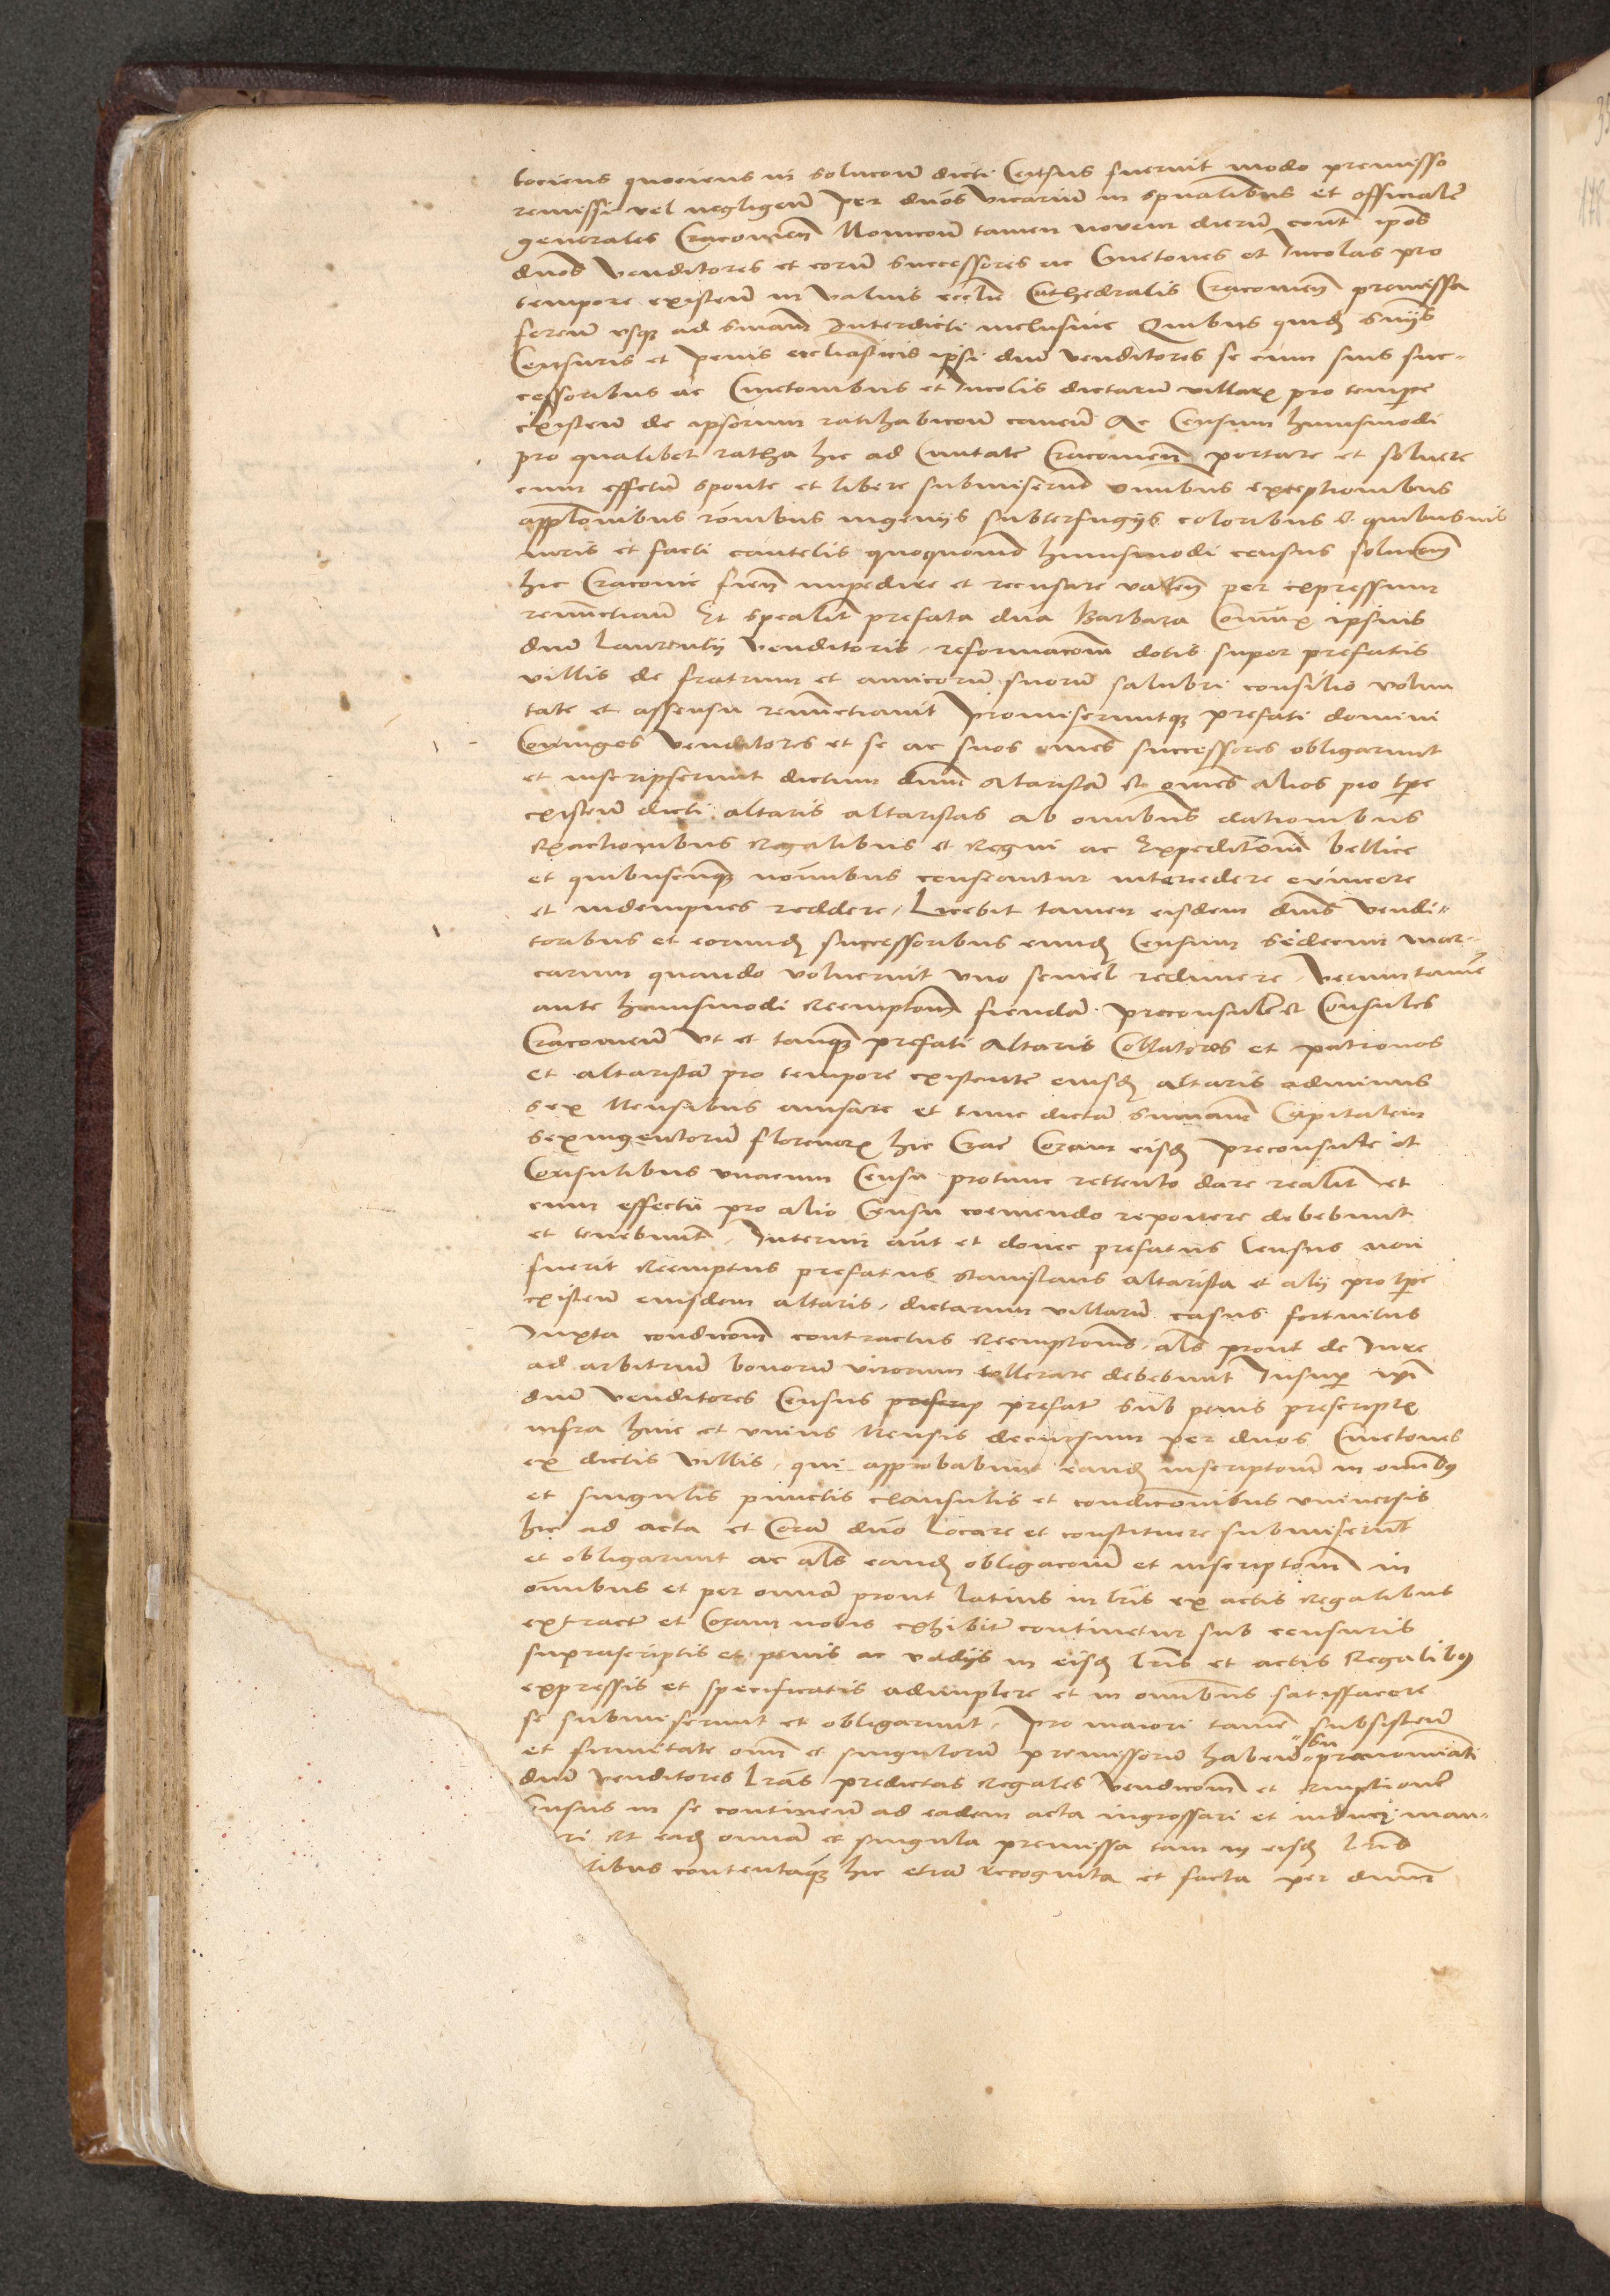 tociens quociens in solucōne dicti Census fuerint modo premisso
remissi vel negligen̄ per dn̄os vicarium in spūalibus et officialem̄
generales Cracovien̄ Monicōne tamen novem dierum̄ cont̄ ipsos
dn̄os venditores et eorum̄ successores ac Cmetones et Incolas pro
tempore existen̄ in valvis eccl̄ie Cathedralis Cracovien̄ premissa
feren̄ usq̄ ad sn̄iam Interdicti inclusive Quibus quidē sn̄ijs
Censuris et penis eccliasticis ipsi dn̄i venditores se cum suis suc-
cessoribus ac Cmetonibus et Incolis dictarum villarꝝ pro tempore
existen̄ de ipsorum ratihabicōne caven̄ Ac Censum huiusmodi
pro qualibet ratha hic ad Civitatē Cracovien̄ portare et solvere
cum effectu sponte et libere submiserunt omnibus exceptionibus
applōnibus rōnibus ingenijs subterfugijs coloribus et quibusvis
iuris et facti cautelis quoquomō huiusmodi census solucōnem
hic Cracovie fien̄ impedire et recusare valen̄ per expressum
renunctian̄ Et spealit̄ prefata dn̄a Barbara Coniux ipsius
dn̄i Laurentij venditoris, reformacōni dotis super prefatis
villis de fratrum et amicorum̄ suorum̄ salubri consilio volun
tate et assensu renunctiavit Promiseruntq̄ prefati domini
Coniuges venditores et se ac suos omnes successores obligarunt
et inscripserunt dictum dn̄um Altaristā et omnes alios pro tp̄e
existen̄ dicti altaris altaristas ab omnibus dationibus
exactionibus Regalibus et Regni ac Expeditiōne bellice
et quibuscunq̄ nōminibus censeantur intercedere evincere
et indempnes reddere, Licebit tamen eisdem dn̄is vendi-
toribus et eorundē successoribus eundē Censum sedecim mar-
carum quando voluerint uno semel redimere, Veruntamē
ante huiusmodi Reemptōnem fiendā preconsulem et Consules
Cracovien̄ ut et tanq̄ prefati Altaris Collatores et patronos
et altaristam pro tempore existentē eiusdē altaris adminus
sex Mensibus avisare et tunc dictā summam Capitalem
sexingentorum̄ florenorꝝ hic Crac̄ Coram eisdē Preconsule et
Consulibus unacum Censu protunc rettento dare realit̄ et
cum effectu pro alio Censu coemendo reponere debebunt
et tenebunt̄, Interim aut̄ et donec prefatus Census non
fuerit Reemptus prefatus Stanislaus altarista et alij pro tp̄e
existen̄ eiusdem altaris, dictarum villarum̄ casus fortuitos
Iuxta condicōnem contractus Reemptōnis, al̄s prout de Iure
ad arbitrium̄ bonorum̄ virorum tollerare debebunt Insup̄ ipi
dn̄i venditores Census prescrip prefati sub penis prescriptꝭ
infra hinc et unius Mensis decursum per duos Cmetones
ex dictis villis, qui approbabunt eandē inscriptōnem in omnibꝰ
et singulis punctis clausulis et condicōnibus universis
hic ad acta et Corā dn̄o Locare et constituere submiserunt
et obligarunt ac al̄s eandē obligacōnem et inscriptōnem in
omnibus et per omnia prout latius in lr̄is ex actis Regalibus
extractꝭ et Coram nobis exhibitꝭ continetur sub censuris
suprascriptis et penis ac vadijs in eisdē lr̄is et actis Regalibꝰ
expressis et specificatis adimplere et in omnibus satisffacere
se submiserunt et obligarunt, Pro maiori tamē subsisten̄
et firmitate omni et singulorum̄ premissorum habenda prenominati
dn̄i venditores Lr̄as predictas Regales vendicōnem et emptionē
ensus in se continen̄ ad eadem acta ingrossari et induci man-
ri Et eadē omnia et singula premissa tam in eisdē lr̄is
libus contentaq̄ hic etiā recognita et facta per dn̄um